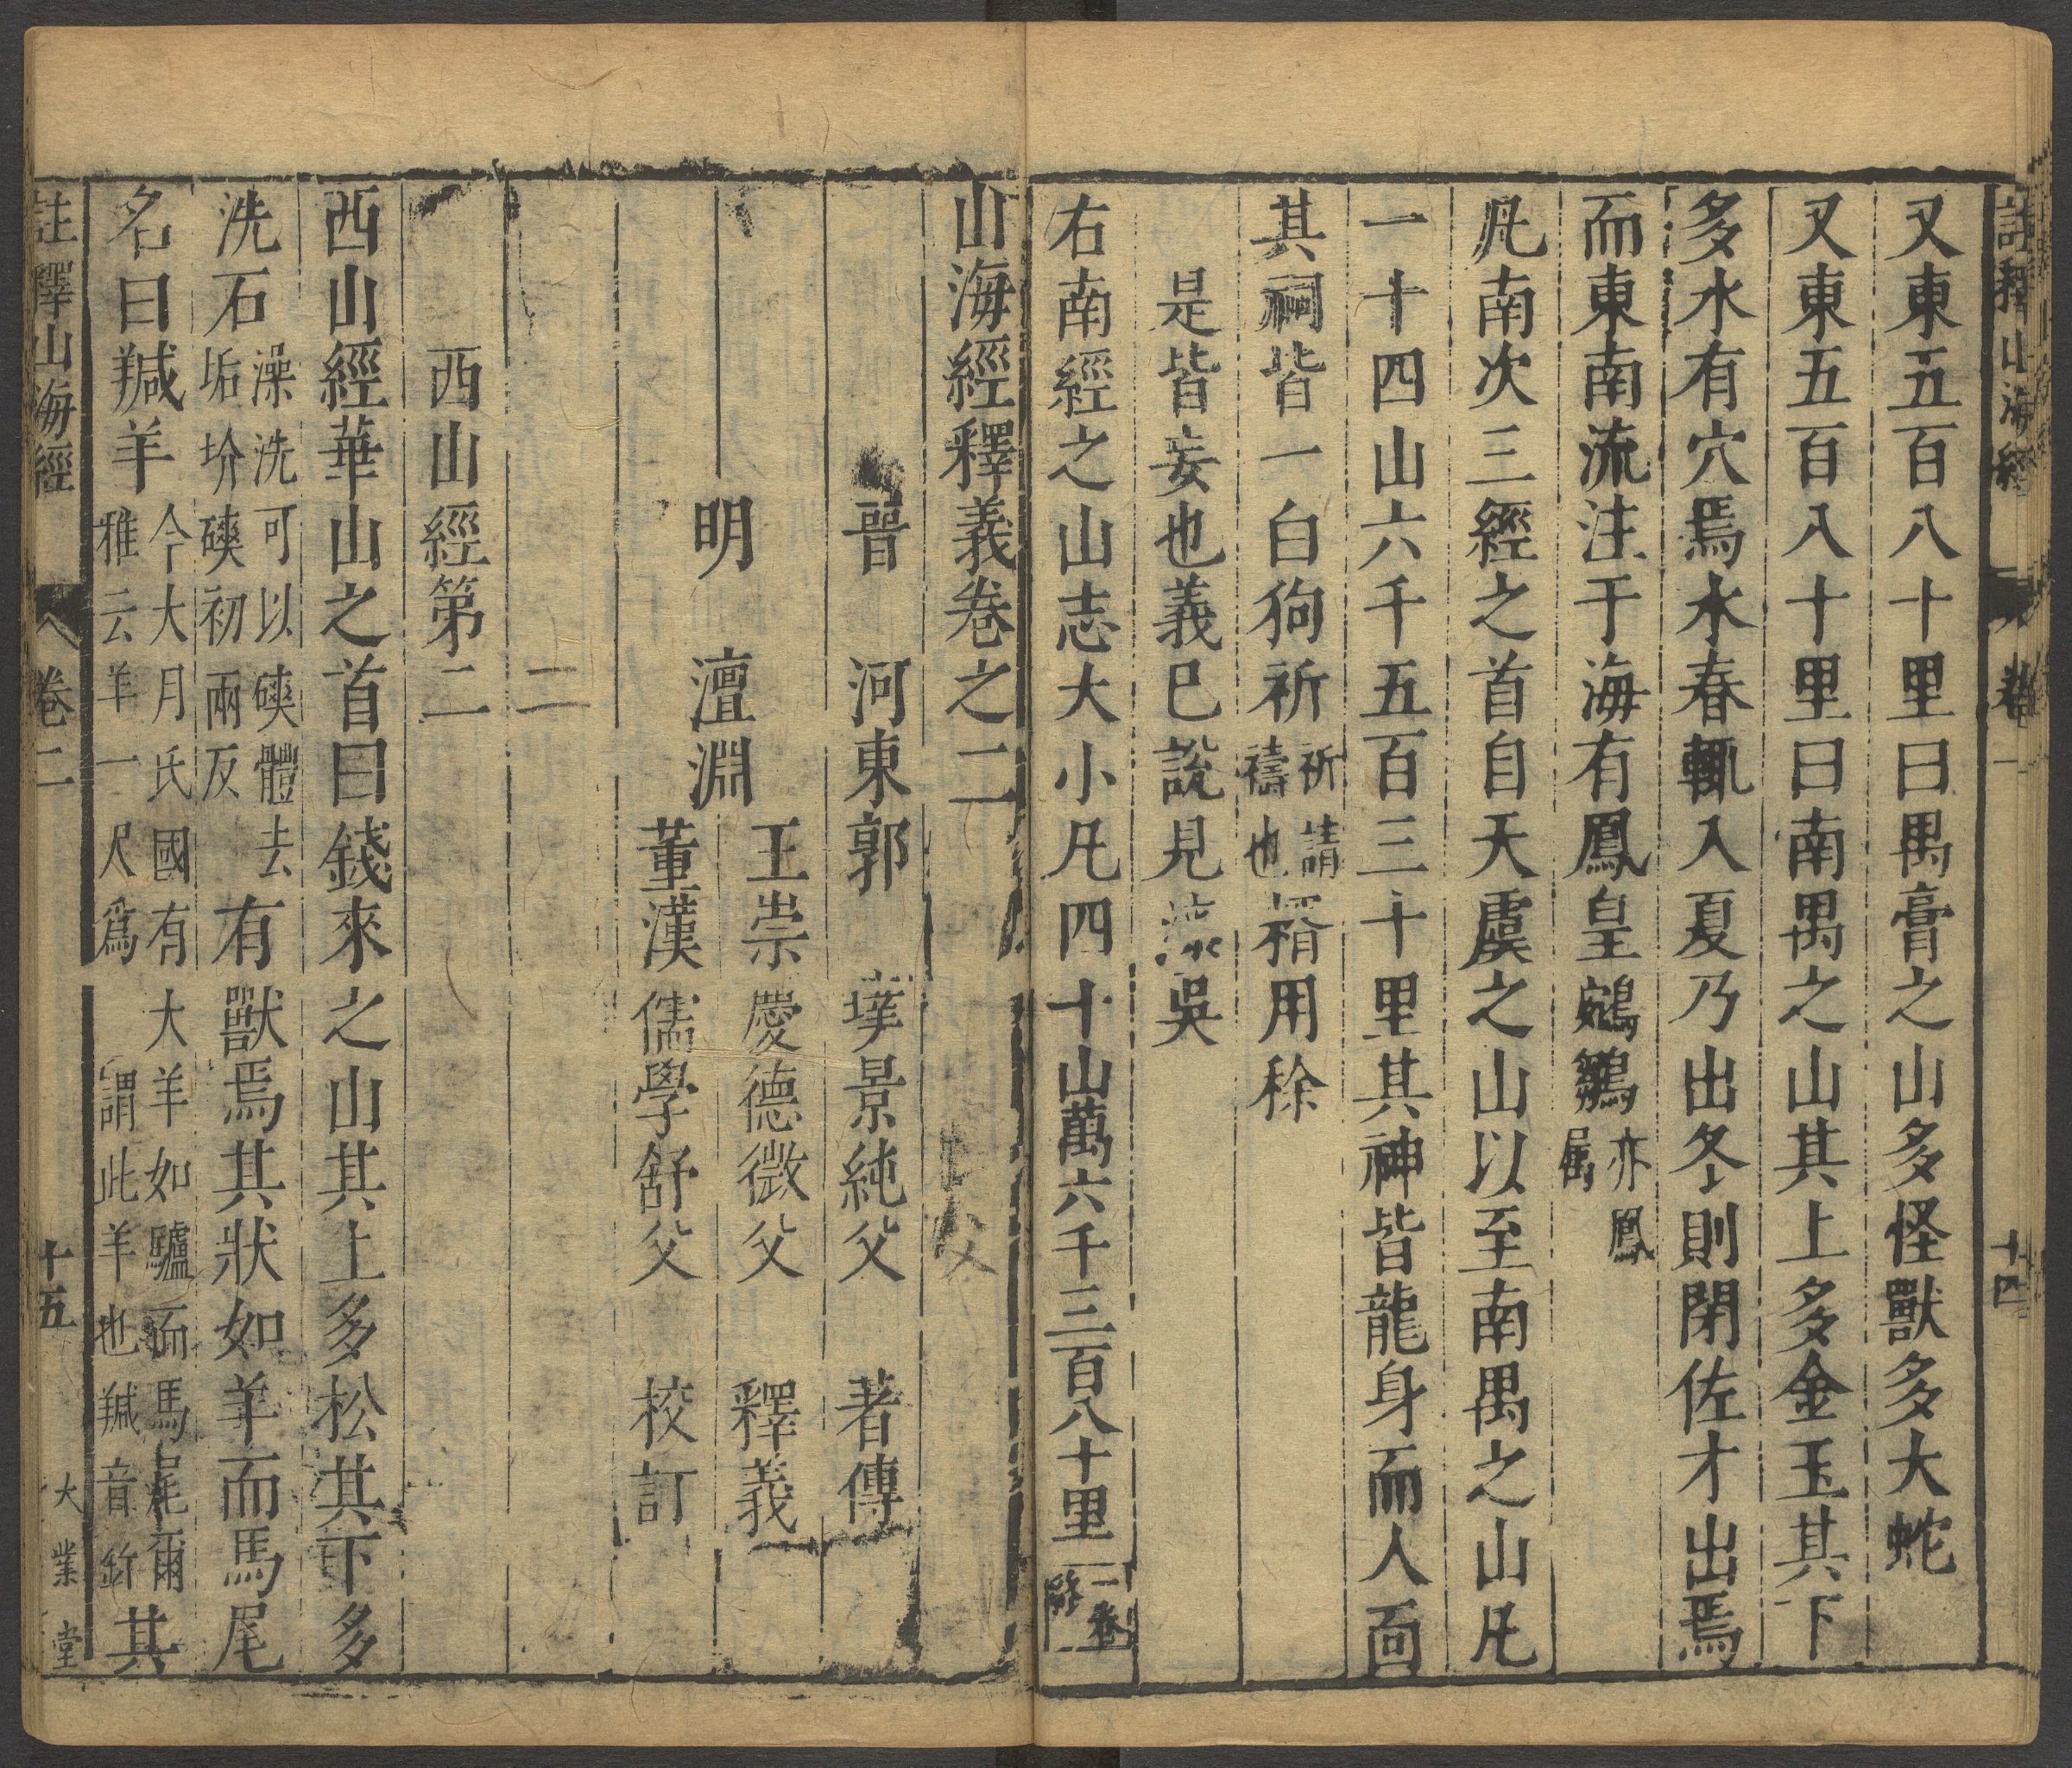 註釋山海經 卷一 十四
又東五百八十里曰禺膏之山多怪獸多大蛇
又東五百八十里曰南禺之山其上多金玉其下
多水有穴焉水春輒入夏乃出冬則閉佐才出焉
而東南流注于海有鳳皇鵷鶵亦鳳屬
凡南次三經之首自天虞之山以至南禺之山凡
一十四山六千五百三十里其神皆龍身而人面
其祠皆一白狗祈祈請禱也糈用稌
是皆妄也義已說見 吳
右南經之山志大小凡四十山萬六千三百八十里一卷終
山海經釋義卷之二
晉 河東郭 璞景純父 著傳
明 澶淵 王崇慶德微父 釋義
董漢儒學舒父 校訂
二
西山經第二
西山經華山之首曰錢來之山其上多松其下多
洗石澡洗可以磢體去垢圿磢初兩反有獸焉其狀如羊而馬尾
名曰羬羊今大月氏國有大羊如驢而馬尾爾雅云羊一尺爲 謂此羊也羬音針其
註釋山海經 卷二 十五 大業堂